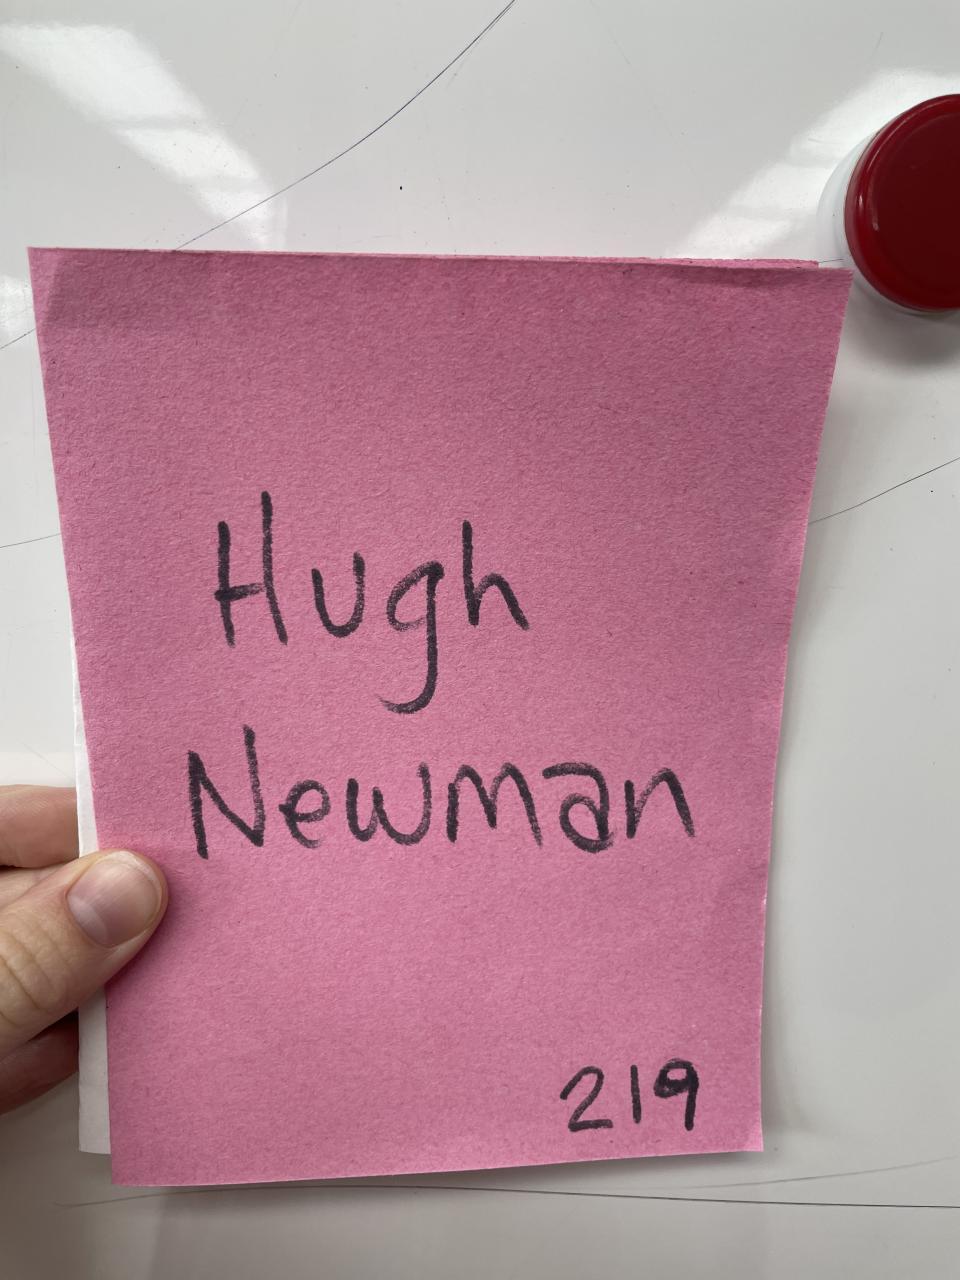 Hugh
Newman
219